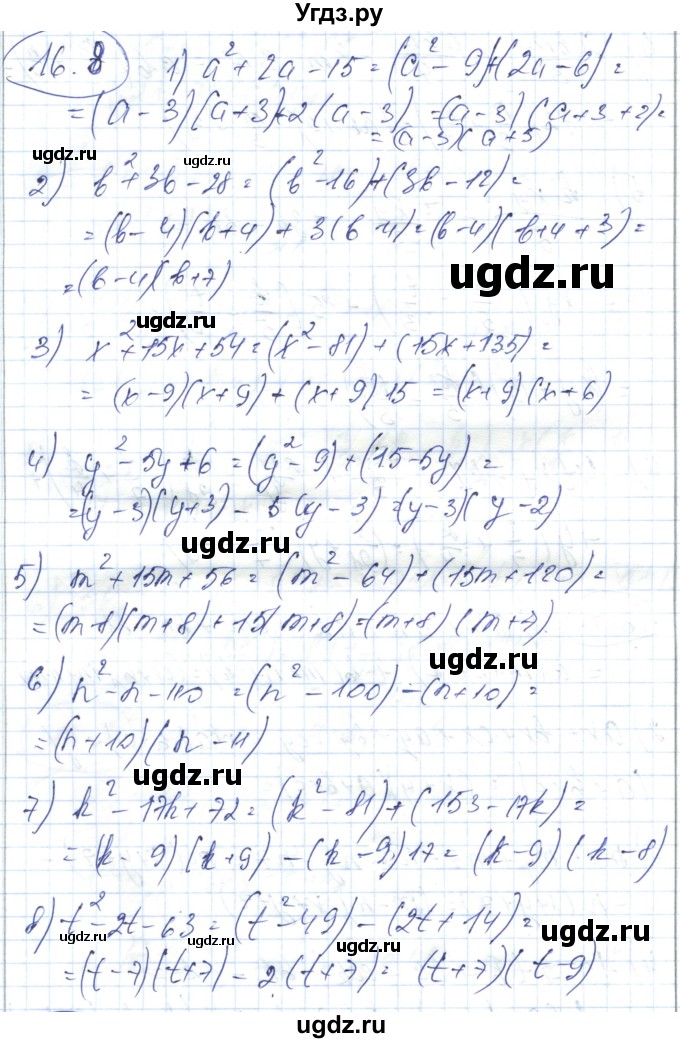 Угдз.ру
16.8 1) a² + 2a - 15 = (a² - 9) + (2a - 6) =
= (a - 3)(a + 3) + 2(a - 3) = (a - 3)(a + 3 + 2) =
= (a - 3)(a + 5)
ugdz.ru ugdz.ru
2) b² + 3b - 28 = (b² - 16) + (3b - 12) =
= (b - 4)(b + 4) + 3(b 4) = (b - 4)(b + 4 + 3) =
= (b - 4)(b + 7)
ugdz.ru ugdz.ru
ugdz.ru
3) x² + 15x + 54 = (x² - 81) + (15x + 135) =
= (x - 9)(x + 9) + (x + 9) 15 = (x + 9)(x + 6)
4) y² - 5y + 6 = (y² - 9) + (15 - 5y) =
= (y - 3)(y + 3) - 5(y - 3) = (y - 3)(y - 2)
ugdz.ru
5) m² + 15m + 56 = (m² - 64) + (15m + 120) =
= (m - 8)(m + 8) + 15(m + 8) = (m + 8)(m + 7)
ugdz.ru
6) n² - n - 110 = (n² - 100) - (n + 10) =
= (n + 10)(n - 11)
ugdz.ru
7) k² - 17k + 72 = (k² - 81) + (153 - 17k) =
= (k - 9)(k + 9) - (k - 9) 17 = (k - 9)(k - 8)
8) t² - 2t - 63 = (t² - 49) - (2t + 14) =
ugdz.ru ugdz.ru ugdz.ru
= (t - 7)(t + 7) - 2(t + 7) = (t + 7)(t - 9)
ugdz.ru